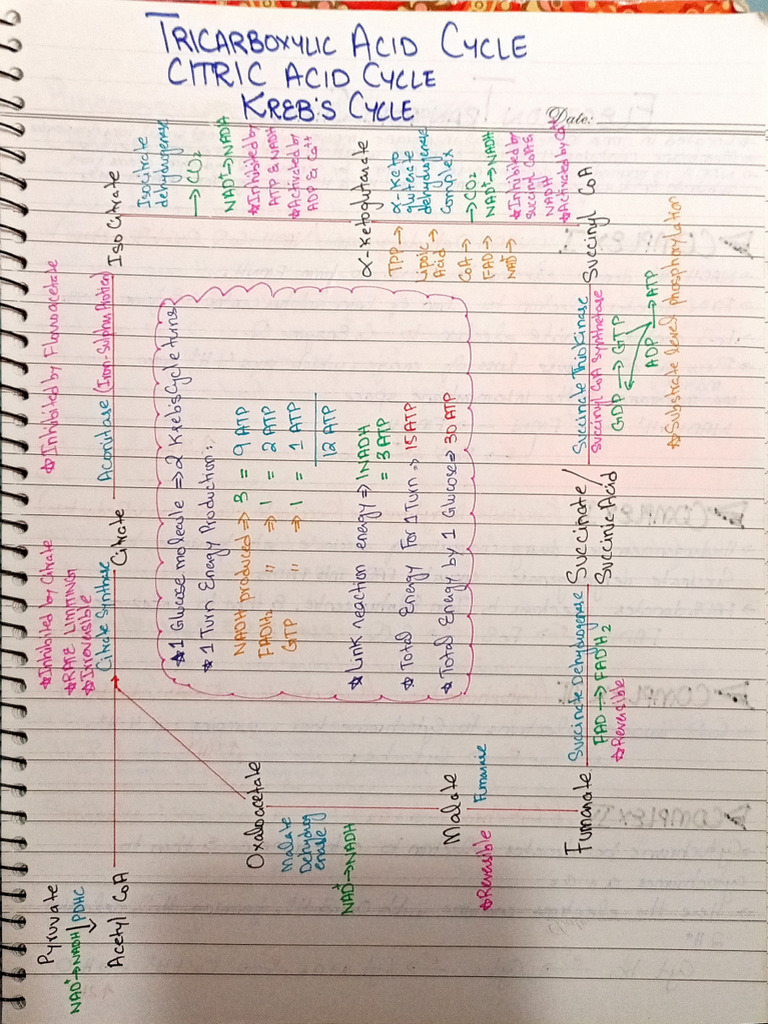 TRICARBOXYLIC ACID CYCLE
CITRIC ACID CYCLE
KREB'S CYCLE
Date:
Pyruvate
NAD⁺→NADH PDHC
Acetyl CoA
☆Inhibited by Citrate
☆RATE LIMITING
☆Irreversible
Citrate Synthase
Citrate
☆Inhibited by Flouroacetate
Aconitase (Iron-Sulphur Protien)
Iso Citrate
Isocitrate
dehydrogenase
→ CO₂
NAD⁺→NADH
☆Inhibited by
ATP & NADH
☆Activated by
ADP & Ca⁺⁺
α-ketoglutarate
TPP→
Lipoic
Acid→
CoA→
FAD→
NAD⁺→
α-Keto
gluterate
dehydrogenase
Complex
→CO₂
NAD⁺→NADH
☆Inhibited by
succinyl CoA &
NADH
☆Activated by Ca⁺⁺
Succinyl CoA
Succinate Thiokinase
Succinyl CoA synthetase
GDP → GTP
ADP → ATP
☆Substrate level phosphorylation
Succinate/
Succinic Acid
Succinate Dehydrogenase
FAD → FADH₂
☆Reversible
Fumarate
Fumarase
☆Reversible
Malate
Malate
Dehydrog
enase
NAD⁺→NADH
Oxaloacetate
☆ 1 Glucose molecule => 2 Krebs Cycle turns
☆ 1 Turn Energy Production:-
NADH produced => 3 = 9 ATP
FADH₂ " => 1 = 2 ATP
GTP " => 1 = 1 ATP
12 ATP
☆ Link reaction energy => 1 NADH
= 3 ATP
☆ Total Energy For 1 Turn => 15 ATP
☆ Total Energy by 1 Glucose => 30 ATP